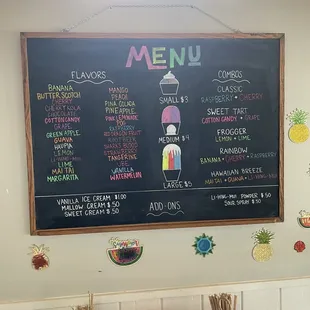 MENU
FLAVORS
BANANA
BUTTER SCOTCH
CHERRY
CHERRY COLA
CHOCOLATE
COCONUT
COTTON CANDY
GRAPE
GREEN APPLE
GUAVA
HAUPIA
LEMON
LI-HING-MUI
LIME
MAI TAI
MARGARITA
MANGO
PEACH
PINA COLADA
PINEAPPLE
PINK LEMONADE
POG
RASPBERRY
ROOT BEER
SHARKS BLOOD
STRAWBERRY
TANGERINE
VANILLA
WATERMELON
SMALL $3
MEDIUM $4
LARGE $5
COMBOS
CLASSIC
RASPBERRY + CHERRY
SWEET TART
COTTON CANDY + GRAPE
FROGGER
LEMON + LIME
RAINBOW
BANANA + CHERRY + RASPBERRY
HAWAIIAN BREEZE
MAI TAI + GUAVA + LI-HING-MUI
VANILLA ICE CREAM $1.00
MALLOW CREAM $.50
SWEET CREAM $.50
ADD-ONS
LI-HING-MUI POWDER $.50
SOUR SPRAY $.50